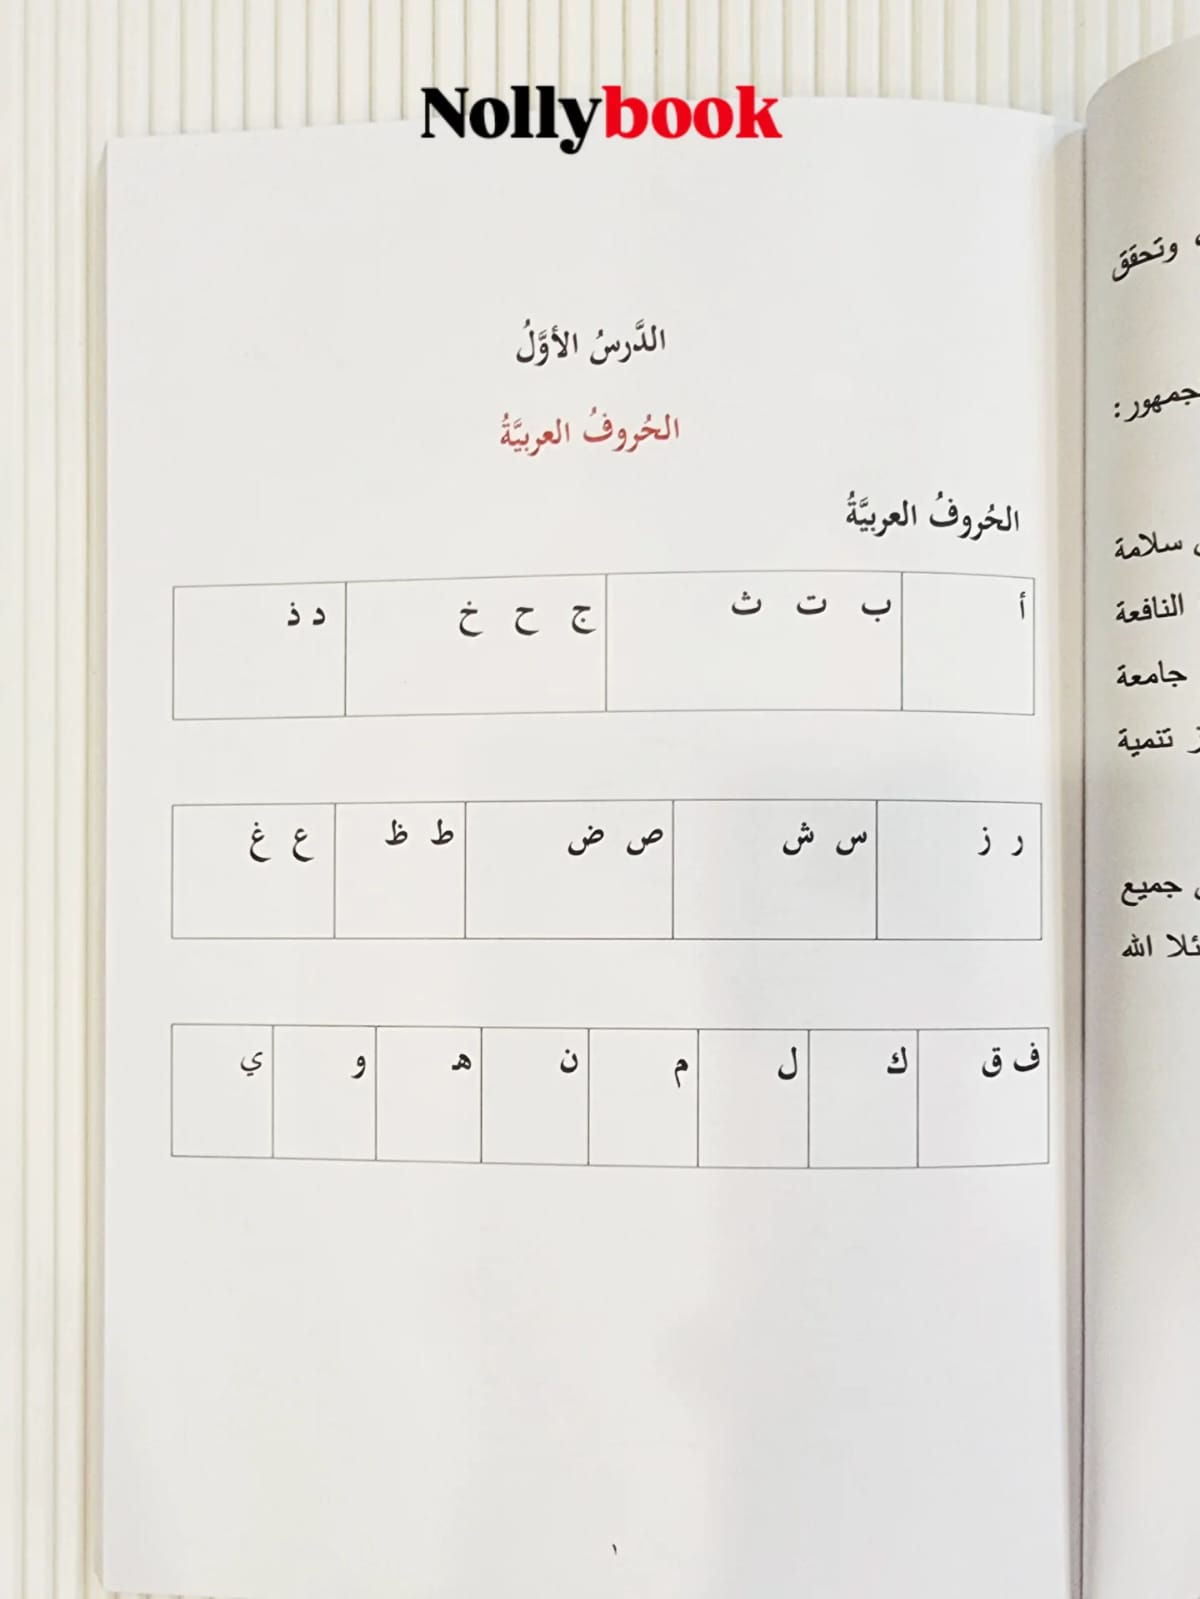 Nollybook
الدَّرسُ الأوَّلُ
الحُروفُ العربيَّةُ
الحُروفُ العربيَّةُ
أ ب ت ث ج ح خ د ذ
ر ز س ش ص ض ط ظ ع غ
ف ق ك ل م ن ه و ي
١
وتحقق
جمهور :
سلامة
النافعة
جامعة
تتمية
جميع
الله